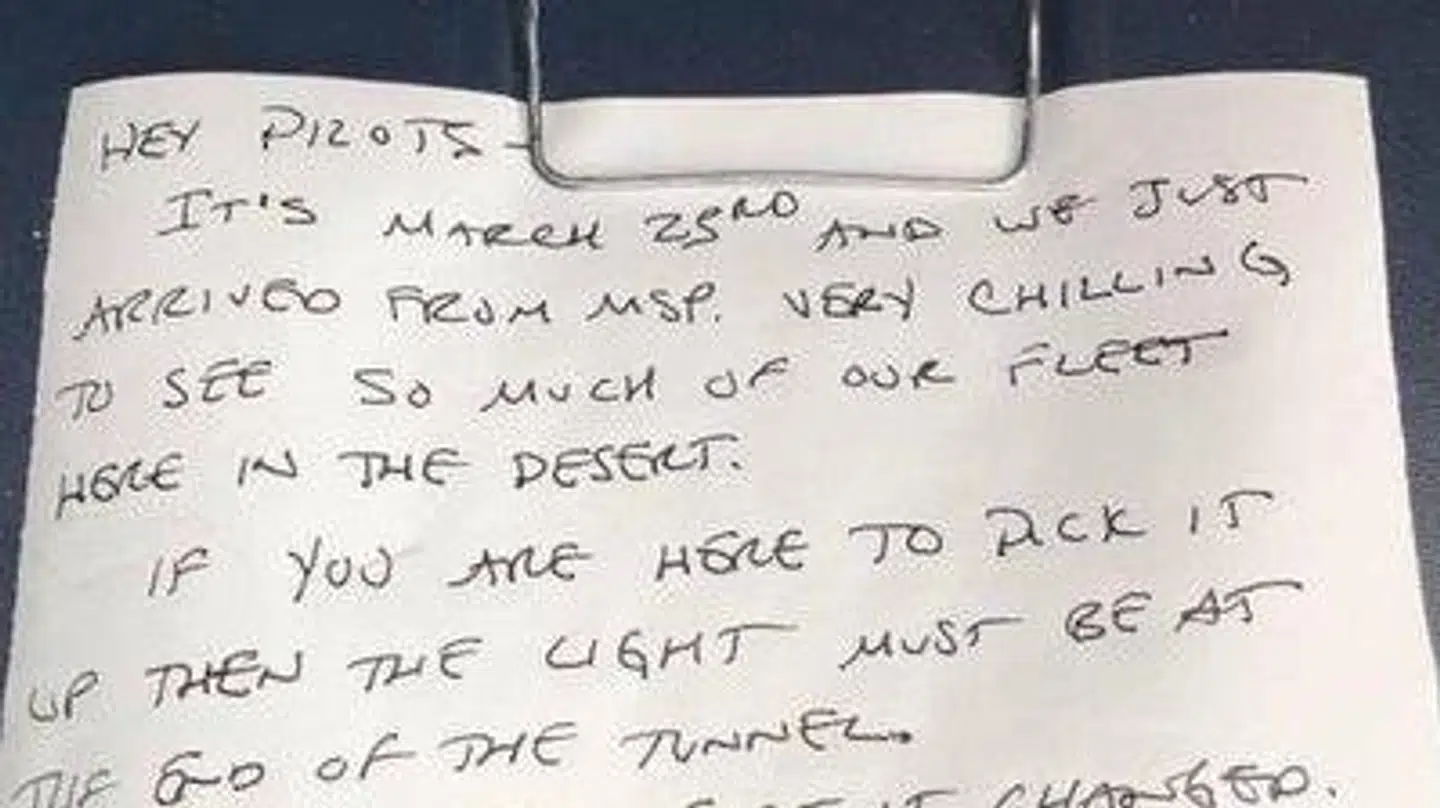 HEY PILOTS-
IT'S MARCH 23RD AND WE JUST
ARRIVED FROM MSP. VERY CHILLING
TO SEE SO MUCH OF OUR FLEET
HERE IN THE DESERT.
IF YOU ARE HERE TO PICK IT
UP THEN THE LIGHT MUST BE AT
THE END OF THE TUNNEL.
IT CHANGED.